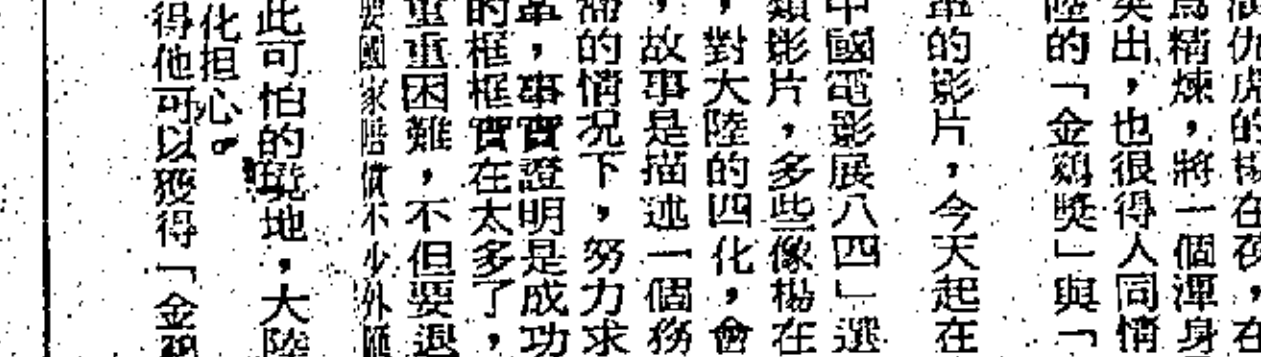 演仇虎的楊在葆，在
爲精煉，將一個渾身
突出，也很得人同情
陸的「金鷄獎」與「
的影片，今天起在
中國電影展八四」選
類影片，多些像楊在
，對大陸的四化，會
，故事是描述一個務
的情况下，努力求
革，事實證明是成功
的框框實在太多了，
重重困難，不但要退
要國家賠償不少外匯
此可怕的境地，大陸
化担心。
得他可以獲得「金鷄